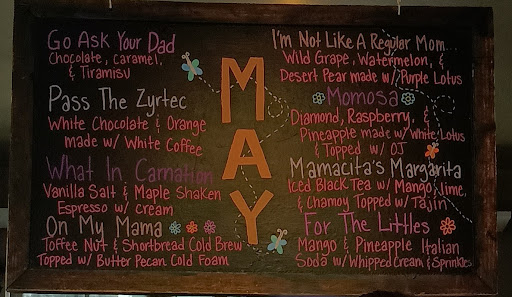 Go Ask Your Dad
Chocolate, caramel,
& Tiramisu
Pass The Zyrtec
White Chocolate & Orange
made w/ White Coffee
What In Carnation
Vanilla Salt & Maple Shaken
Espresso w/ Cream
On My Mama
Toffee Nut & Shortbread Cold Brew
Topped w/ Butter Pecan Cold Foam
MAY
I'm Not Like A Regular Mom...
Wild Grape, Watermelon, &
Desert Pear made w/ Purple Lotus
Momosa
Diamond, Raspberry, &
Pineapple made w/ White Lotus
& Topped w/ OJ
Mamacita's Margarita
Iced Black Tea w/ Mango, lime,
& Chamoy Topped w/ Tajin
For The Littles
Mango & Pineapple Italian
Soda w/ Whipped Cream & Sprinkles